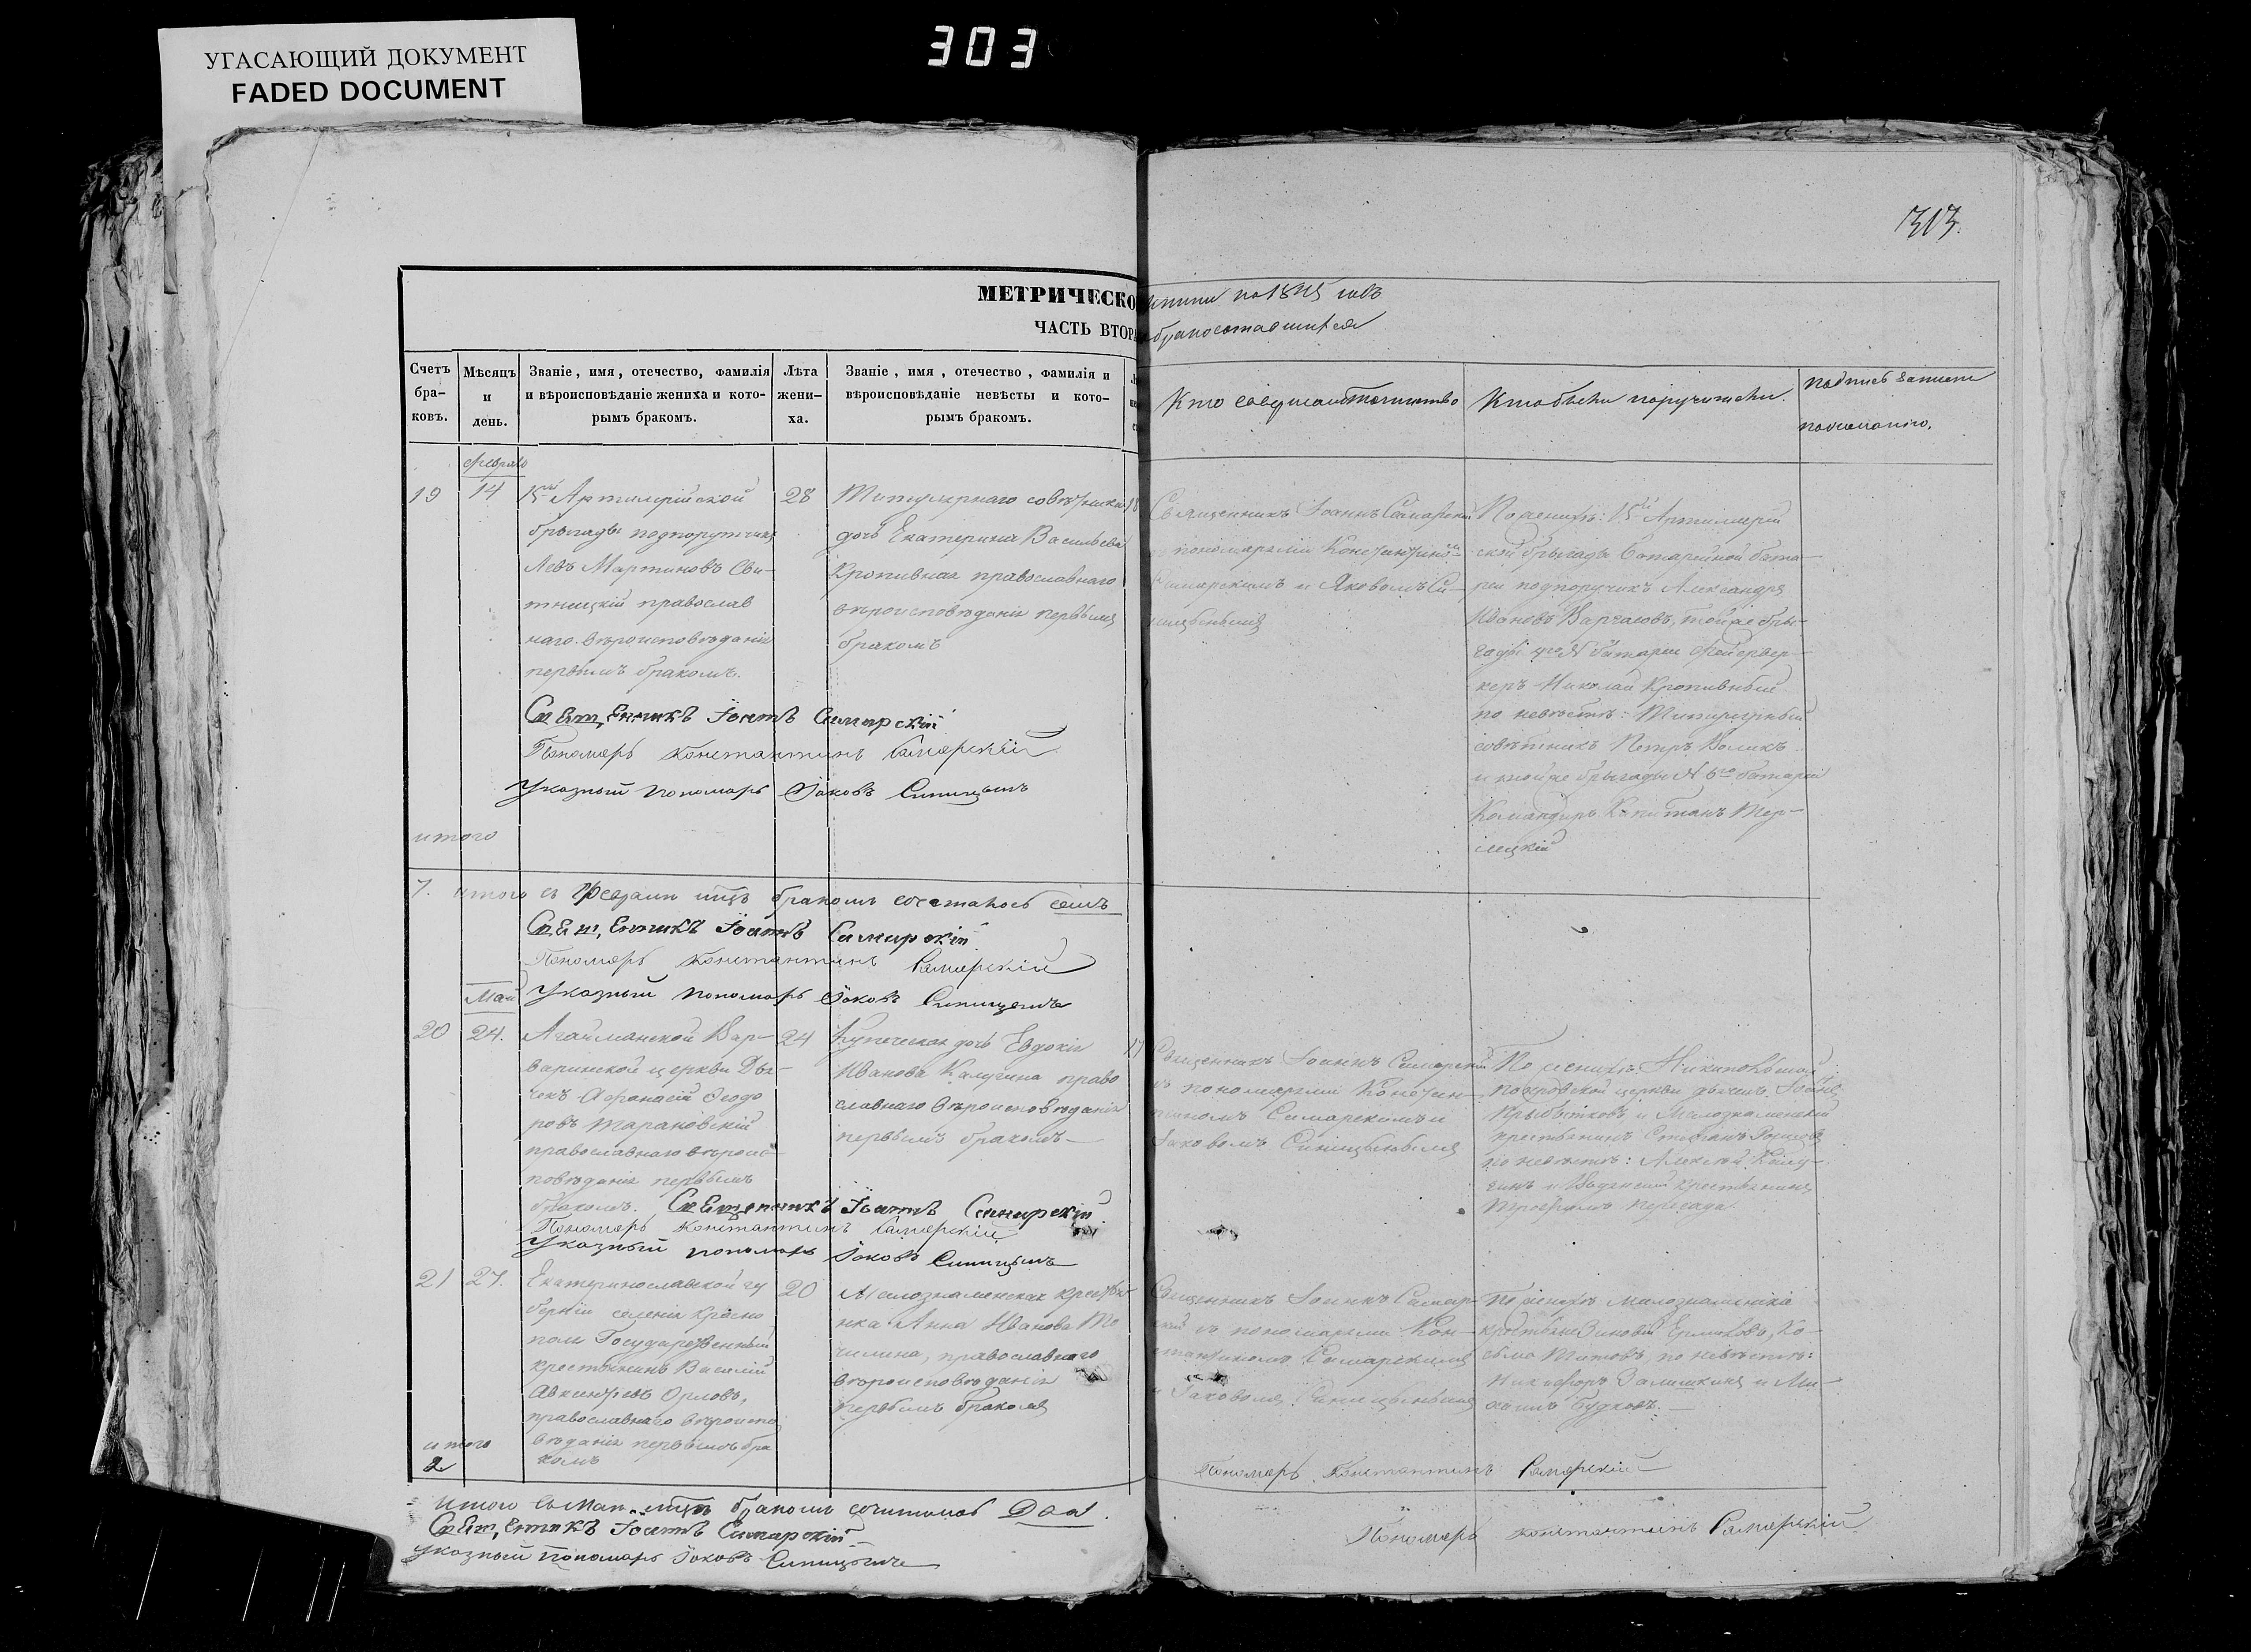 303
УГАСАЮЩИЙ ДОКУМЕНТ
FADED DOCUMENT
313.
МЕТРИЧЕСКО
ЧАСТЬ ВТОРА
книги на годъ
бракосочетавшихся
Счетъ браковъ.
Мѣсяцъ и день.
Званіе, имя, отечество, фамилія и вѣроисповѣданіе жениха и которымъ бракомъ.
Лѣта жениха.
Званіе, имя, отечество, фамилія и вѣроисповѣданіе невѣсты и которымъ бракомъ.
Кто совершалъ таинство
Кто были поручители.
подпись
19
14
15 Артилерійской
бригады подпорутчикъ
Левъ Мартиновъ Сви-
тницкій православ
наго вѣроисповѣданія
первымъ бракомъ.
28
Титулярнаго совѣтника
дочь Екатерина Васильева
Кропивная православнаго
вѣроисповѣданія первымъ
бракомъ
18
Священникъ Іоаннъ Самарскій
пономарями Константиномъ
Самарскимъ и Яковомъ Си-
ницынымъ
По женихѣ: 15й Артиллерій
ской бригады Батарейной бата-
реи подпоручикъ Александръ
Ивановъ тойже бри-
гады батареи Фейервер-
керъ Николай Кропивный
по невѣстѣ: Титулярный
совѣтникъ Петръ Воликъ
и тойже бригады N 6го батареи
Командиръ Капитанъ Тер-
лецкій
Священникъ Іоаннъ Самарскій
Пономарь Константинъ Самарскій
Указный пономарь Іаковъ Синицынъ
итого
7. итого въ Февралѣ мцѣ бракомъ сочеталось семь
Священникъ Іоаннъ Самарскій
Пономарь Константинъ Самарскій
Указный пономарь Іаковъ Синицынъ
Май
20
24.
Агайманской Вар-
варинской церкви Дья-
чекъ Афанасій Феодо
ровъ Тарановскій
православнаго вѣроис-
повѣданія первымъ
бракомъ.
24
Купеческая дочь Евдокія
Иванова Калугина право
славнаго вѣроисповѣданія
первымъ бракомъ
17
Священникъ Іоаннъ Самарскій
съ пономарями Констан-
тиномъ Самарскимъ и
Іаковомъ Синицынымъ
По женихѣ:
покровской церкви дьячекъ Іоаннъ
и Малознаменскій
крестьянинъ Стефанъ
по невѣстѣ: Алексѣй Калу-
гинъ и крестьянинъ
Трофимъ
Священникъ Іоаннъ Самарскій
Пономарь Константинъ Самарскій
Указный пономарь Іаковъ Синицынъ
21
27.
Екатеринославской гу
берніи селенія Красно
поля Государственный
крестьянинъ Василій
Авксентіевъ Орловъ,
православнаго вѣроиспо
вѣданія первымъ бра
комъ
20
Малознаменская крестья
нка Анна Иванова То
чилина, православнаго
вѣроисповѣданія
первымъ бракомъ
Священникъ Іоаннъ Самар-
скій съ пономарями Кон-
стантиномъ Самарскимъ
и Іаковомъ Синицынымъ
По женихѣ малознаменскіе
крестьяне Зиновій Ермаковъ, Ко-
сьма Титовъ, по невѣстѣ:
Никифоръ и Ми-
хаилъ Будковъ.
итого
2
Пономарь Константинъ Самарскій
Итого въ Маѣ мцѣ бракомъ сочиталось Два.
Священникъ Іоаннъ Самарскій
Пономарь Константинъ Самарскій
Указный пономарь Іаковъ Синицынъ